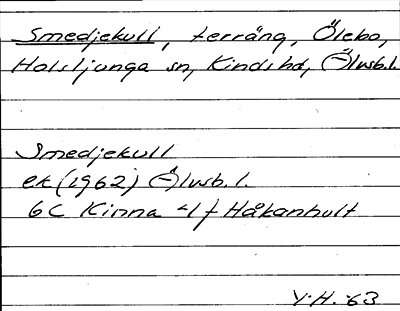 Smedjekull, terräng, Ölebo,
Holsljunga sn, Kinds hd, Älvsb. l.
Smedjekull
ek (1962) Älvsb. l.
6C Kinna 4 f Håkanhult
Y. H. -63